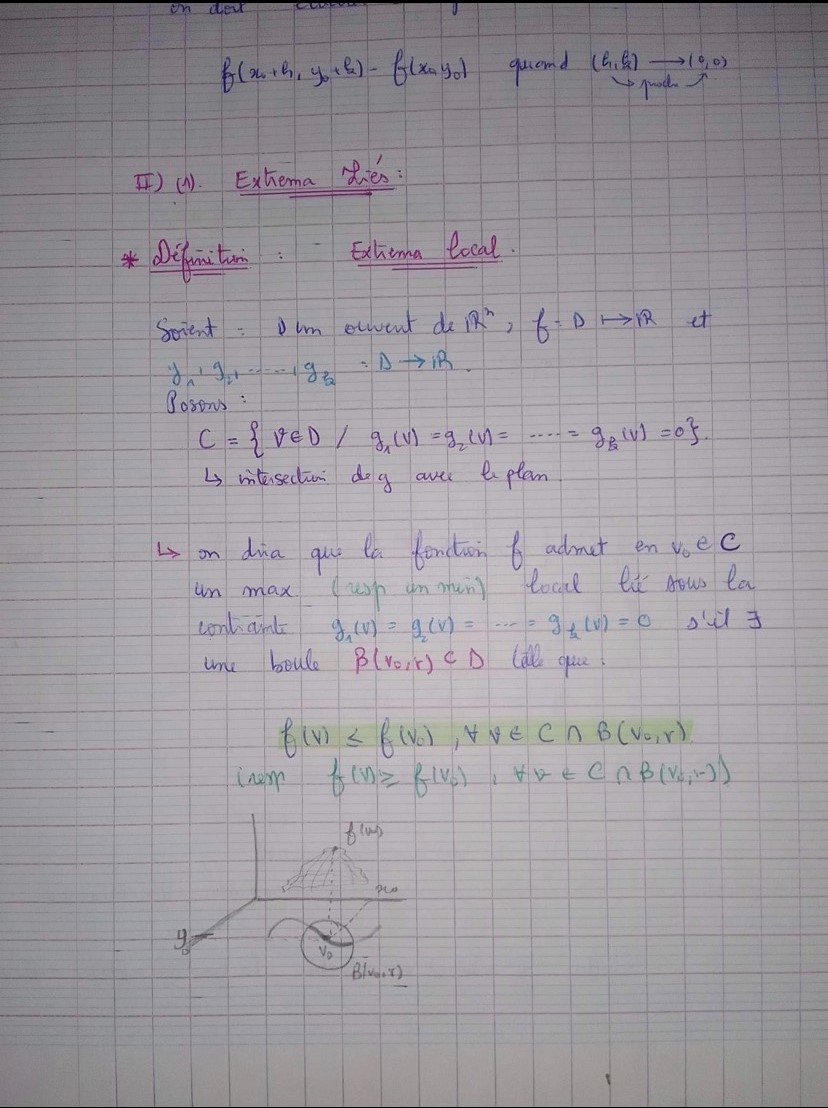 on doit
f(x₀+h, y₀+k) - f(x₀,y₀) quand (h,k) → (0,0)
II) (1). Extrema Liés :
* Définition : Extrema local.
Soient : D un ouvert de ℝⁿ, f : D ↦ ℝ et
g₁, g₂, ......, g_k : D → ℝ.
Posons :
C = { V ∈ D / g₁(V) = g₂(V) = ..... = g_k(V) = 0 }.
↳ intersection de g avec le plan.
↳ on dira que la fonction f admet en v₀ ∈ C
un max (resp un min) local lié sous la
contrainte g₁(V) = g₂(V) = .... = g_k(V) = 0 s'il ∃
une boule B(v₀,r) ⊂ D telle que :
f(V) ≤ f(V₀), ∀ v ∈ C ∩ B(V₀,r)
(resp f(V) ≥ f(V₀), ∀ v ∈ C ∩ B(V₀,r))
x₀
y₀
V₀
B(v₀,r)